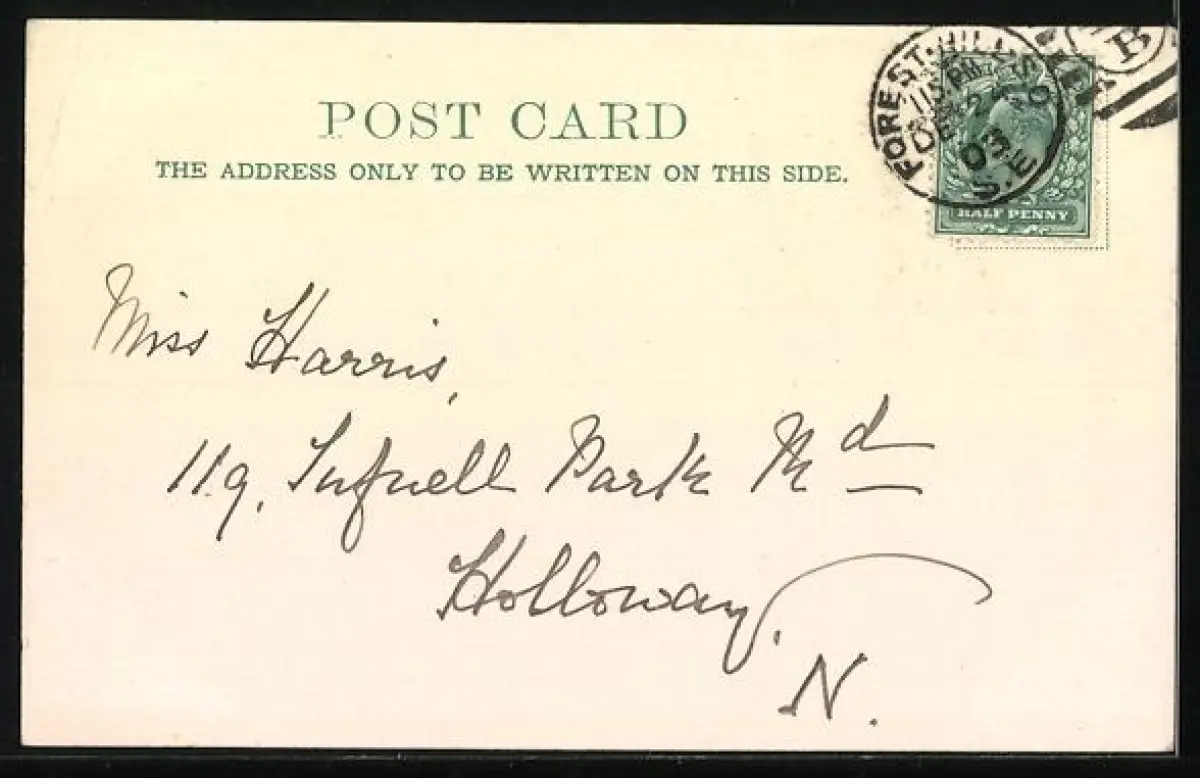 POST CARD
THE ADDRESS ONLY TO BE WRITTEN ON THIS SIDE.
FOREST-HILL S.O
S.E
DE 2
03
B
HALF PENNY
Miss Harris,
119, Tufnell Park Rd
Holloway,
N.